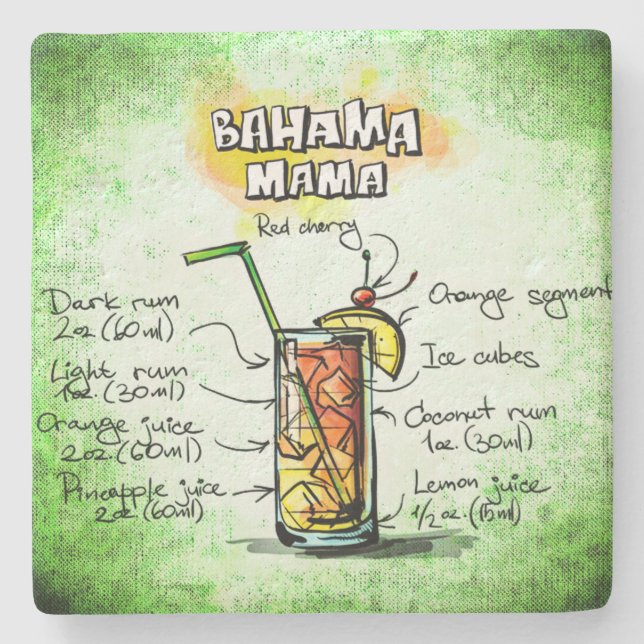 BAHAMA
MAMA
Red cherry
Dark rum
2oz (60ml)
Light rum
1oz. (30ml)
Orange juice
2oz (60ml)
Pineapple juice
2oz (60ml)
Orange segment
Ice cubes
Coconut rum
1oz. (30ml)
Lemon juice
1/2oz. (15ml)